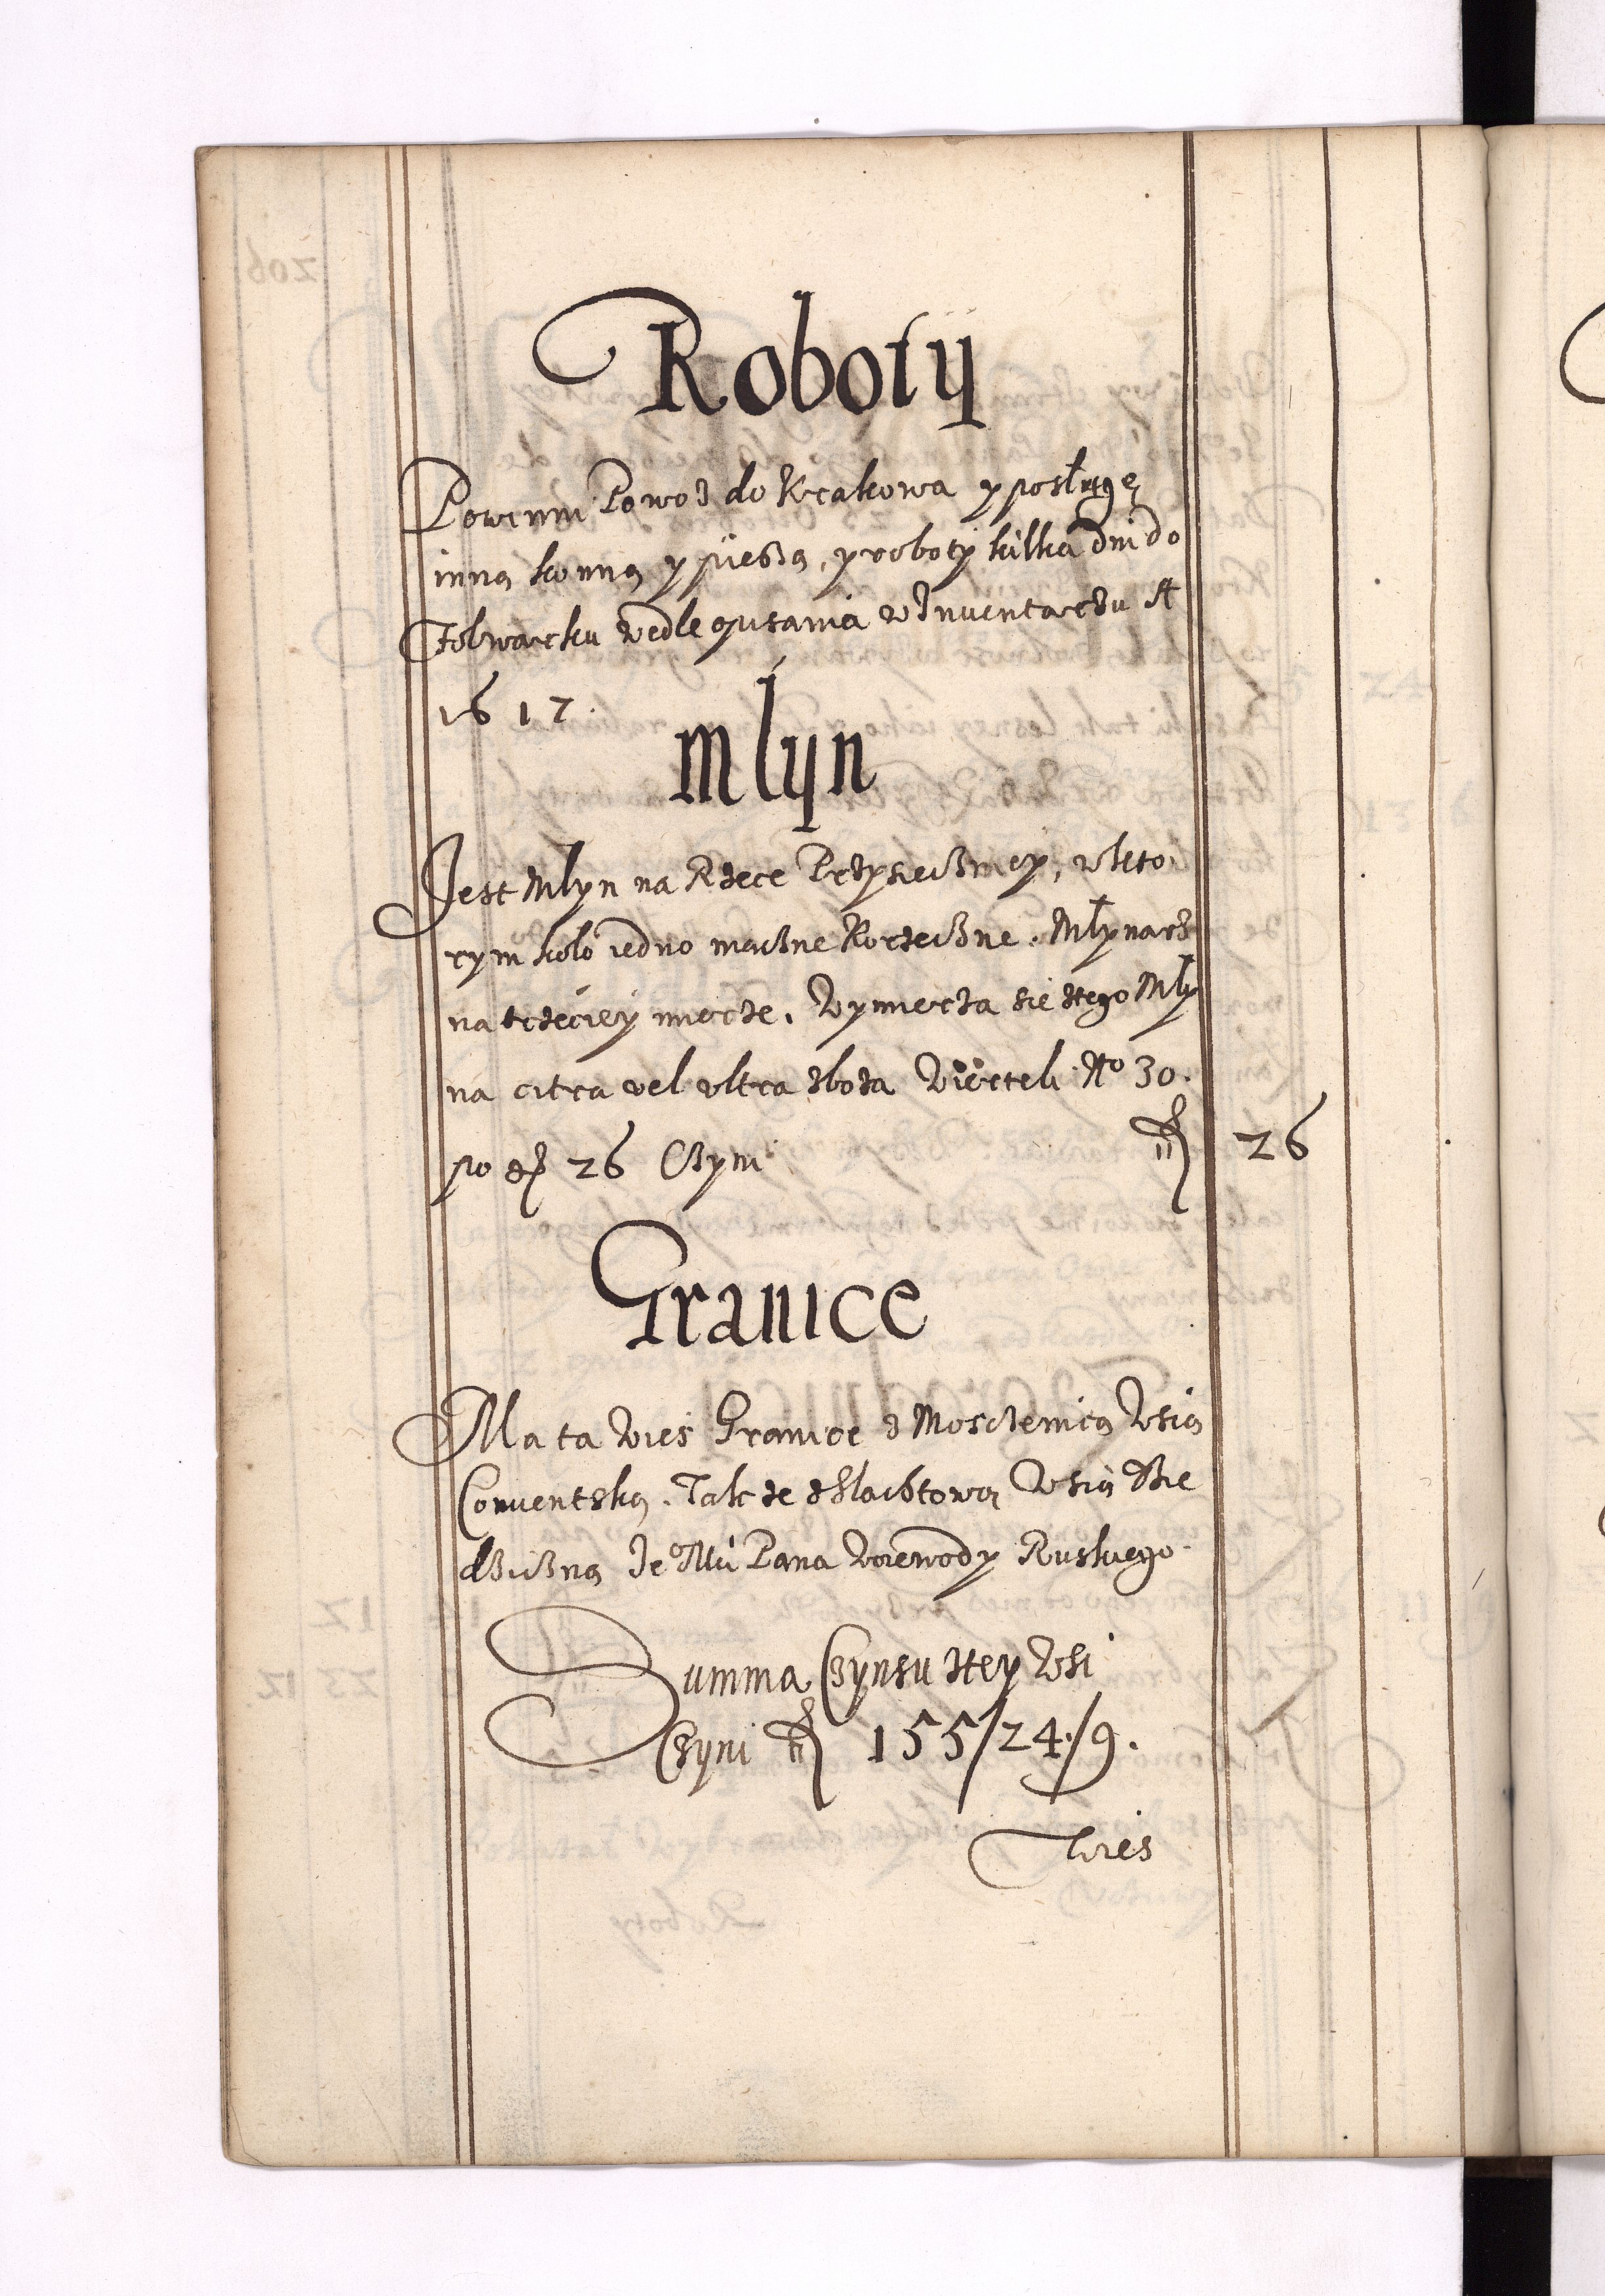 Roboty
Powinni Powoz do Krakowa y posługę
inną konną y pieszą, y roboty kilka dni do
Folwarku wedle opisania w Inwentarzu A
1617.
Mlyn
Jest Mlyn na Rzece Przysieczney, w kto
rym koło iedno maczne Korzeczne. Młynarz
na trzeciey mierze. Wymierza sie ztego Mły
na citra vel vltra zboza Wierteli No 30.
po 26 Czyni 26
Granice
Ma ta Wies Granice z Moscienicą Wsią
Conventską. Takze Szlachtową Wsią Dzie
dziczną Je Mci Pana Woiewody Ruskiego.
Summa Czynsu ztey Wsi
Czyni 155/24/9.
Wies